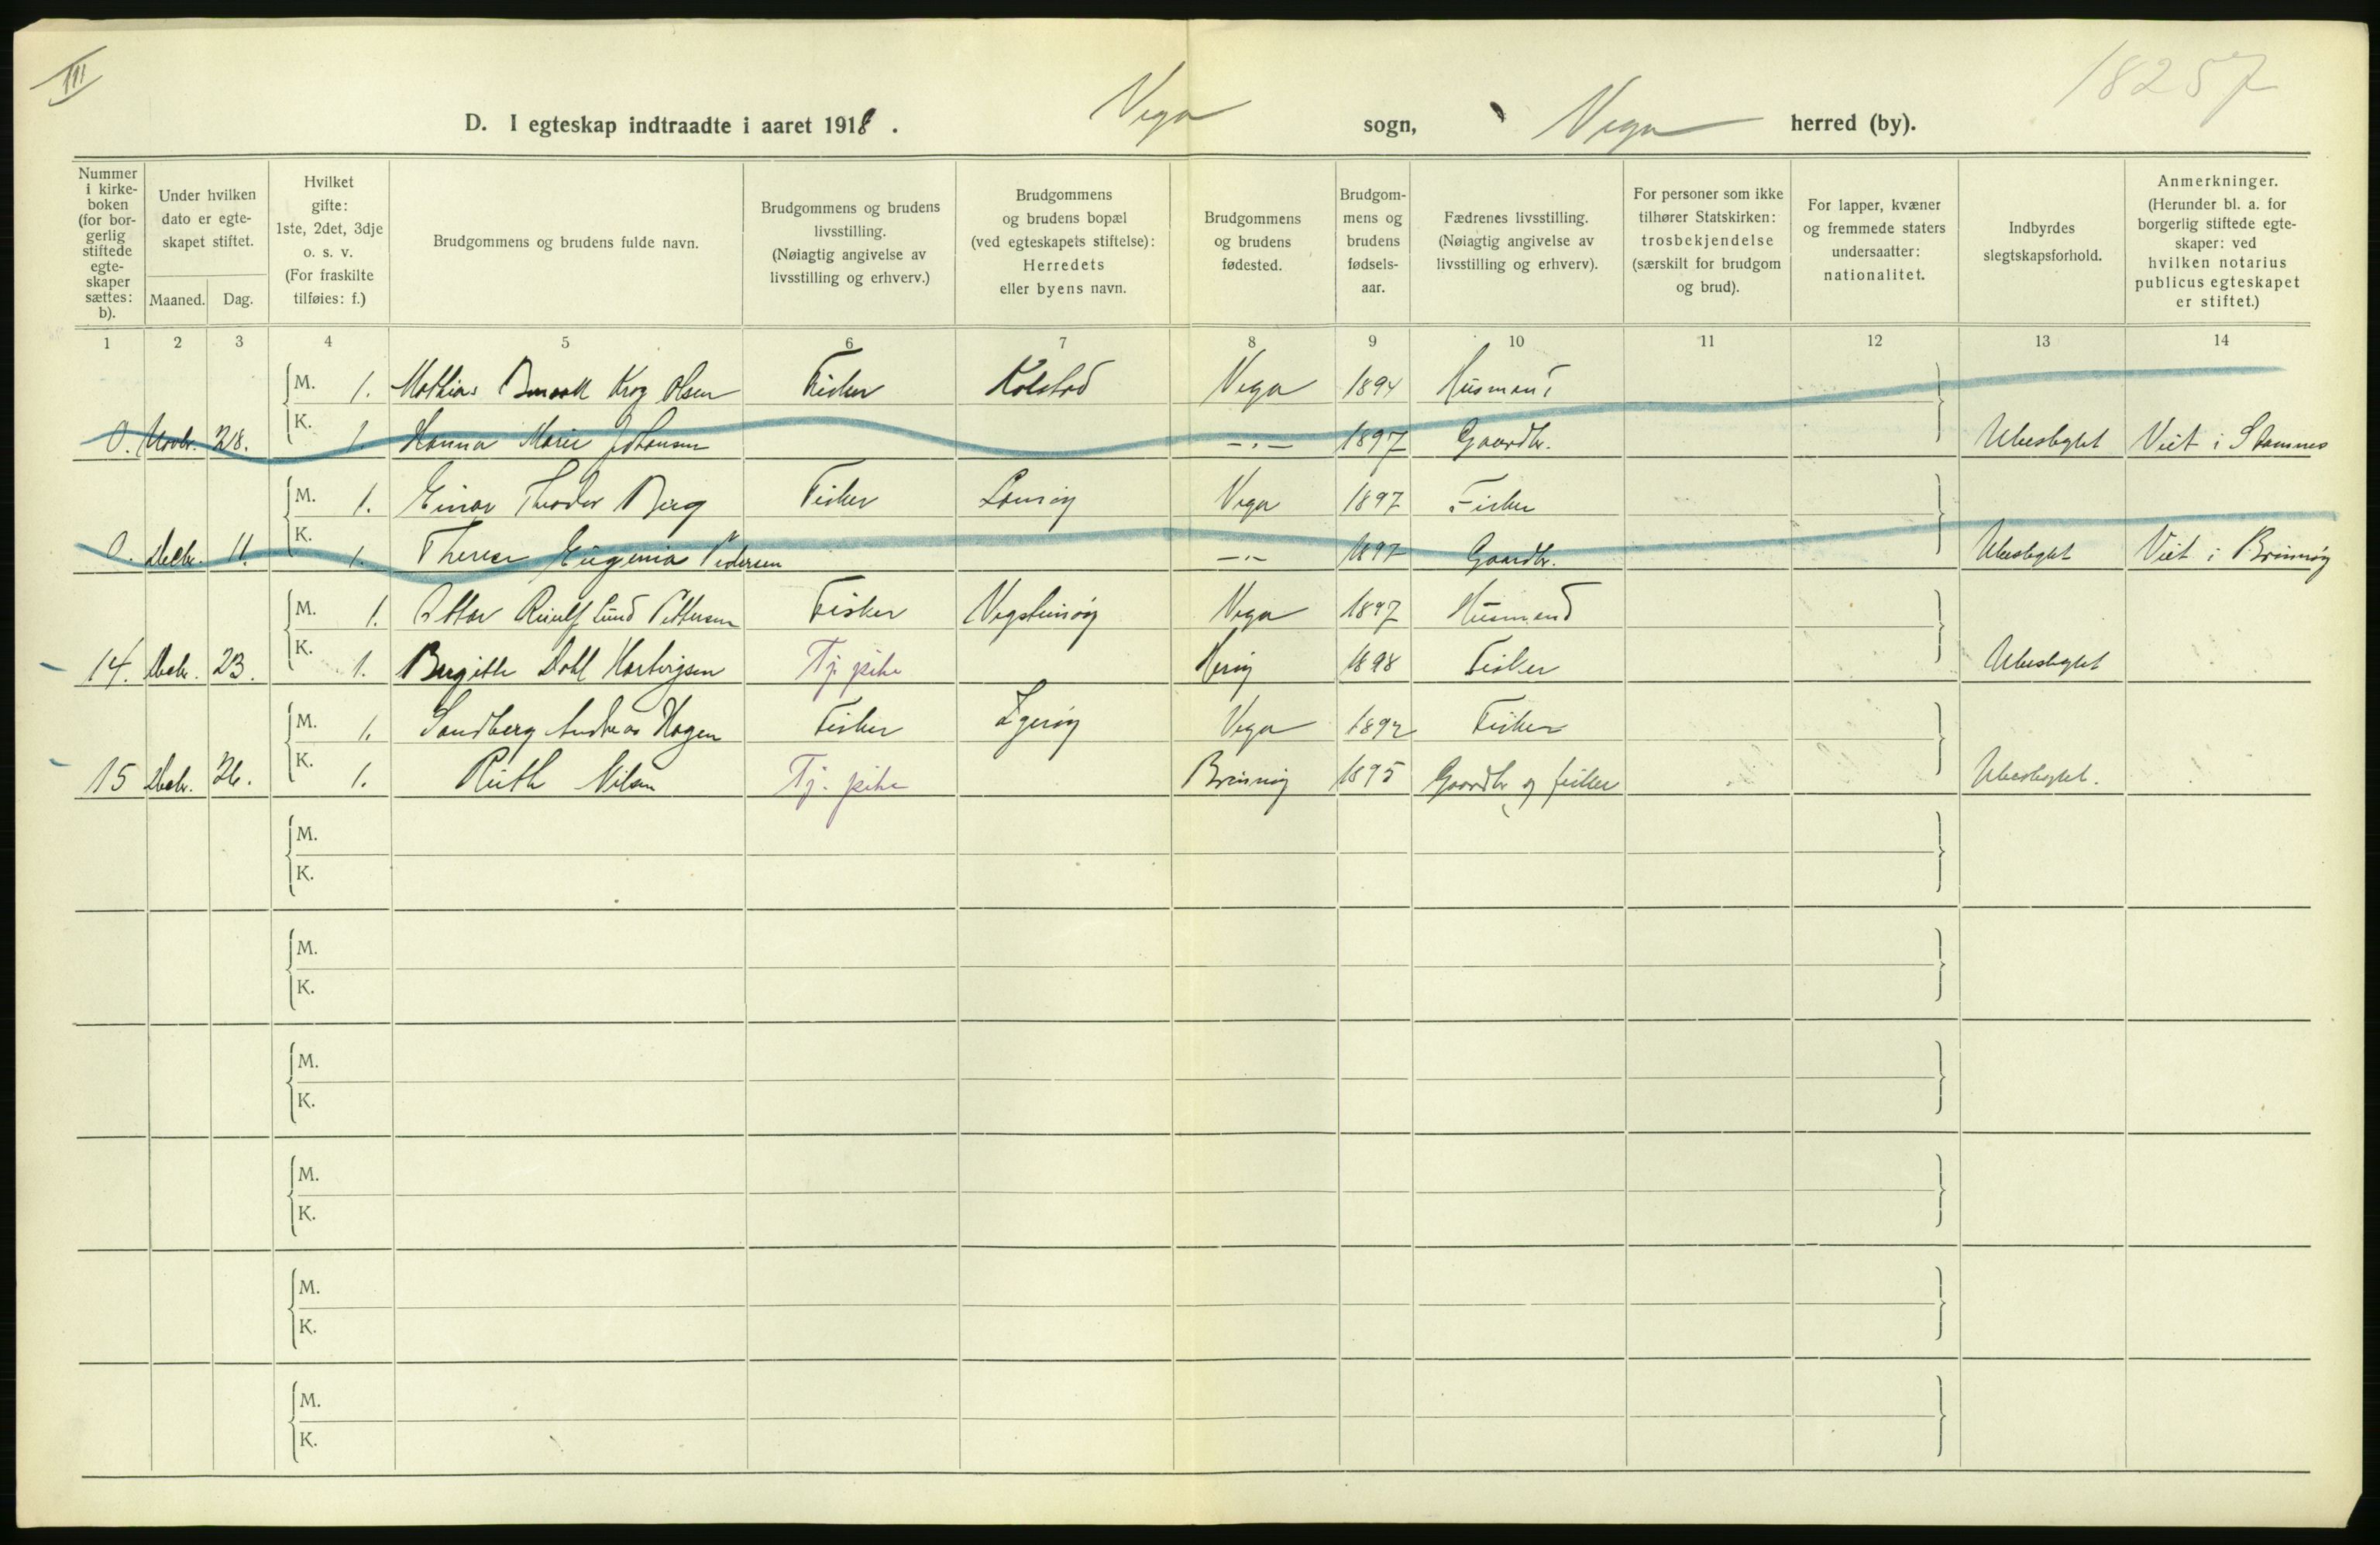 III
18257
D. I egteskap indtraadte i aaret 1918. Vega sogn, Vega herred (by).
Nummer i kirke-boken (for bor-gerlig stiftede egte-skaper sættes: b).
Under hvilken dato er egte-skapet stiftet.
Maaned. Dag.
Hvilket gifte: 1ste, 2det, 3dje o. s. v. (For fraskilte tilføies: f.)
Brudgommens og brudens fulde navn.
Brudgommens og brudens livsstilling. (Nøiagtig angivelse av livsstilling og erhverv.)
Brudgommens og brudens bopæl (ved egteskapets stiftelse): Herredets eller byens navn.
Brudgommens og brudens fødested.
Brudgom-mens og brudens fødsels-aar.
Fædrenes livsstilling. (Nøiagtig angivelse av livsstilling og erhverv).
For personer som ikke tilhører Statskirken: trosbekjendelse (særskilt for brudgom og brud).
For lapper, kvæner og fremmede staters undersaatter: nationalitet.
Indbyrdes slegtskapsforhold.
Anmerkninger. (Herunder bl. a. for borgerlig stiftede egte-skaper: ved hvilken notarius publicus egteskapet er stiftet.)
1 2 3 4 5 6 7 8 9 10 11 12 13 14
M. 1. Mathias Krog Olsen Fisker Kolstad Vega 1894 Husmand
0. Novbr. 28. K. 1. Hanna Marie Johansen -"- 1897 Gaardbr. Ubeslegtet Viet i Stamnes
M. 1. Einar Theodor Berg Fisker Vega 1897 Fisker
0. Decbr. 11. K. 1. Eugenia Pedersen -"- 1897 Gaardbr. Ubeslegtet Viet i Brønnøy
M. 1. Lund Pettersen Fisker Vega 1897 Husmand
14. Decbr. 23. K. 1. Dahl Fisker 1898 Tj. pike Ubeslegtet
M. 1. Sandberg Andreas Hagen Fisker Vega Fisker
15 Decbr. 26. K. 1. Ruth Nilsen Tj. pike Brønnøy 1895 Gaardbr og fisker Ubeslegtet.
M.
K.
M.
K.
M.
K.
M.
K.
M.
K.
M.
K.